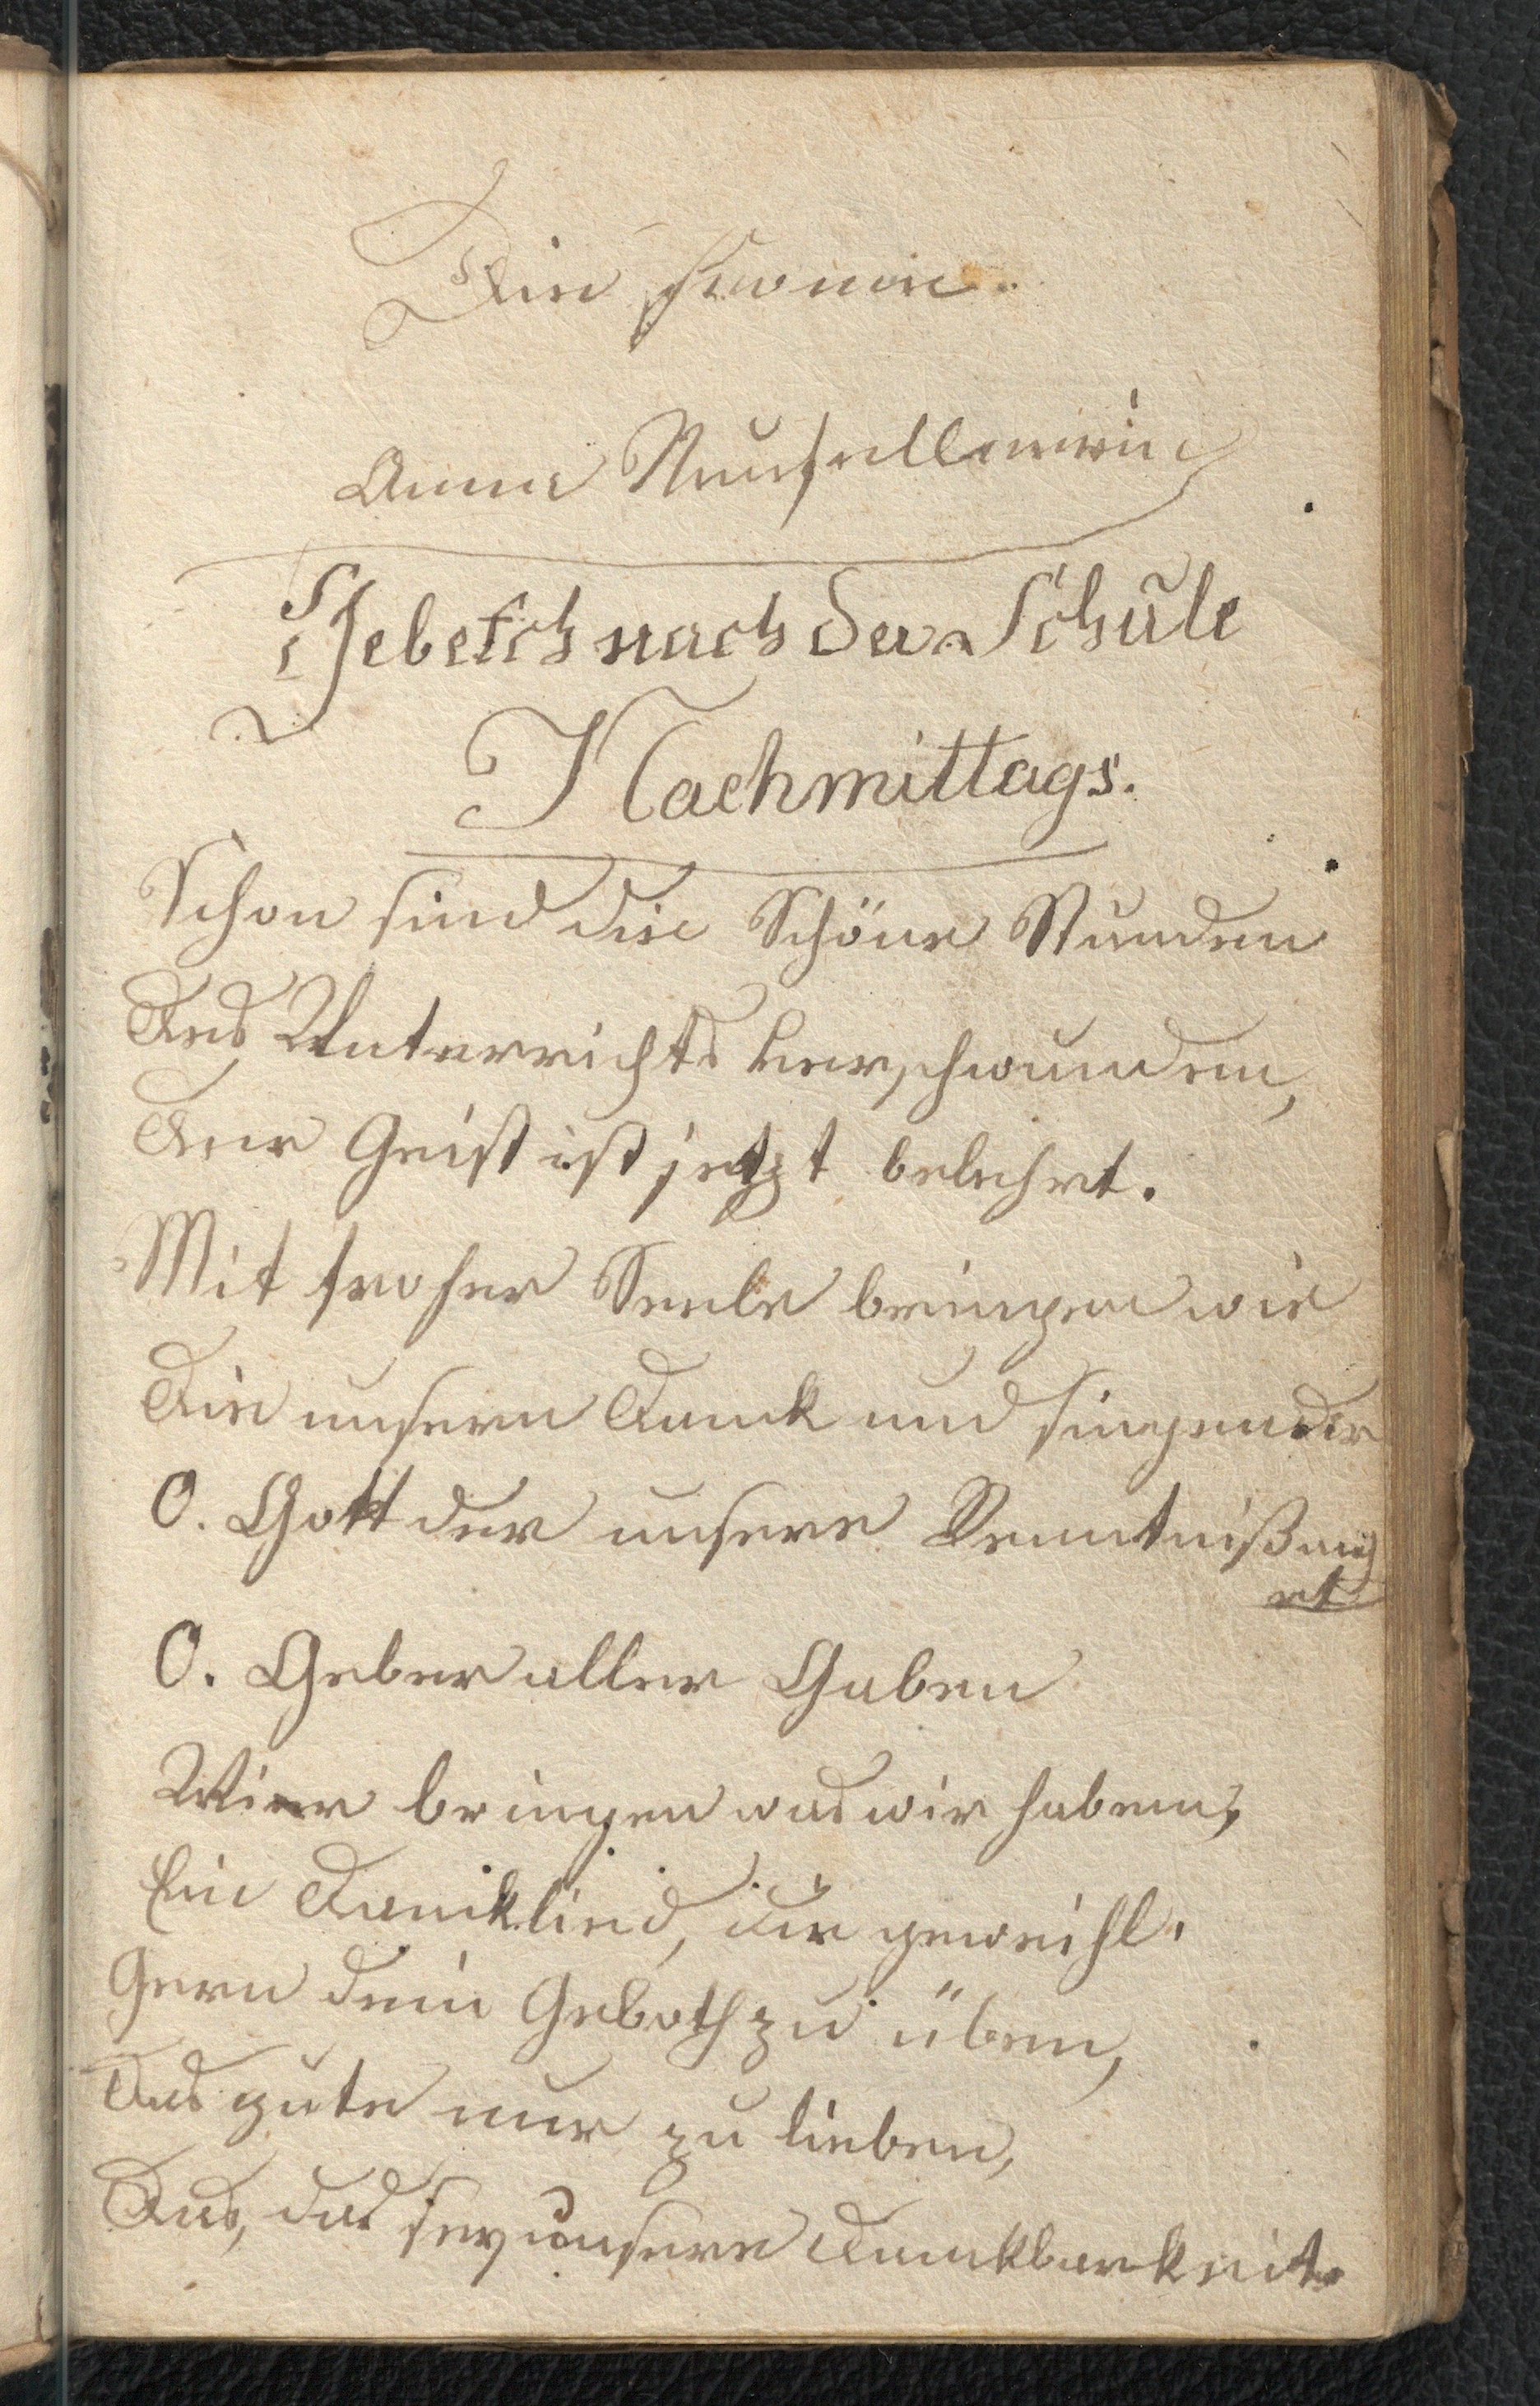 Die fromme
Anna Neuhsellerin
Gebetch nach der Schule
Nachmittags.
Schon sind die Schöne Stunden
Des Unterrichts verschwunden,
Der Geist ist jetzt belehrt.
Mit froher Seele bringen wir
Dir unsern Danck und singen dir
O. Gott der unsere Kenntniß mehrt
O. Geber aller Gaben
Wier bringen was wir haben,
Ein Dancklied, dir geweiht.
Gern dein Geboth zu üben,
Das gute nur zu lieben,
Das, das sey unsere Danckbarkeit.